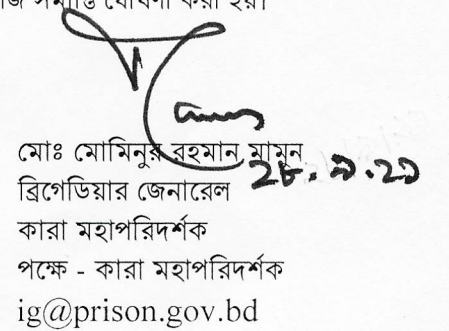 সমাপ্তি ঘোষণা করা হয়।
মোঃ মোমিনুর রহমান মামুন
২৮.৯.২১
ব্রিগেডিয়ার জেনারেল
কারা মহাপরিদর্শক
পক্ষে - কারা মহাপরিদর্শক
ig@prison.gov.bd